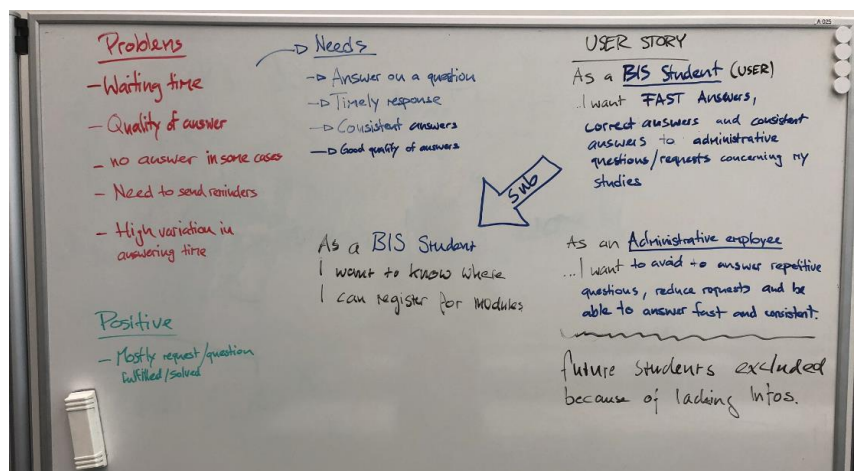 A 025
Problems
- Waiting time
- Quality of answer
- no answer in some cases
- Need to send reminders
- High variation in
answering time
Positive
- Mostly request/question
fulfilled/solved
Needs
Answer on a question
Timely response
Consistent answers
Good quality of answers
Sub
As a BIS Student
I want to know where
I can register for modules
USER STORY
As a BIS Student (USER)
..I want FAST Answers,
correct answers and consistent
answers to administrative
questions/requests concerning my
studies
As an Administrative employee
...I want to avoid to answer repetitive
questions, reduce requests and be
able to answer fast and consistent.
future students excluded
because of lacking Infos.